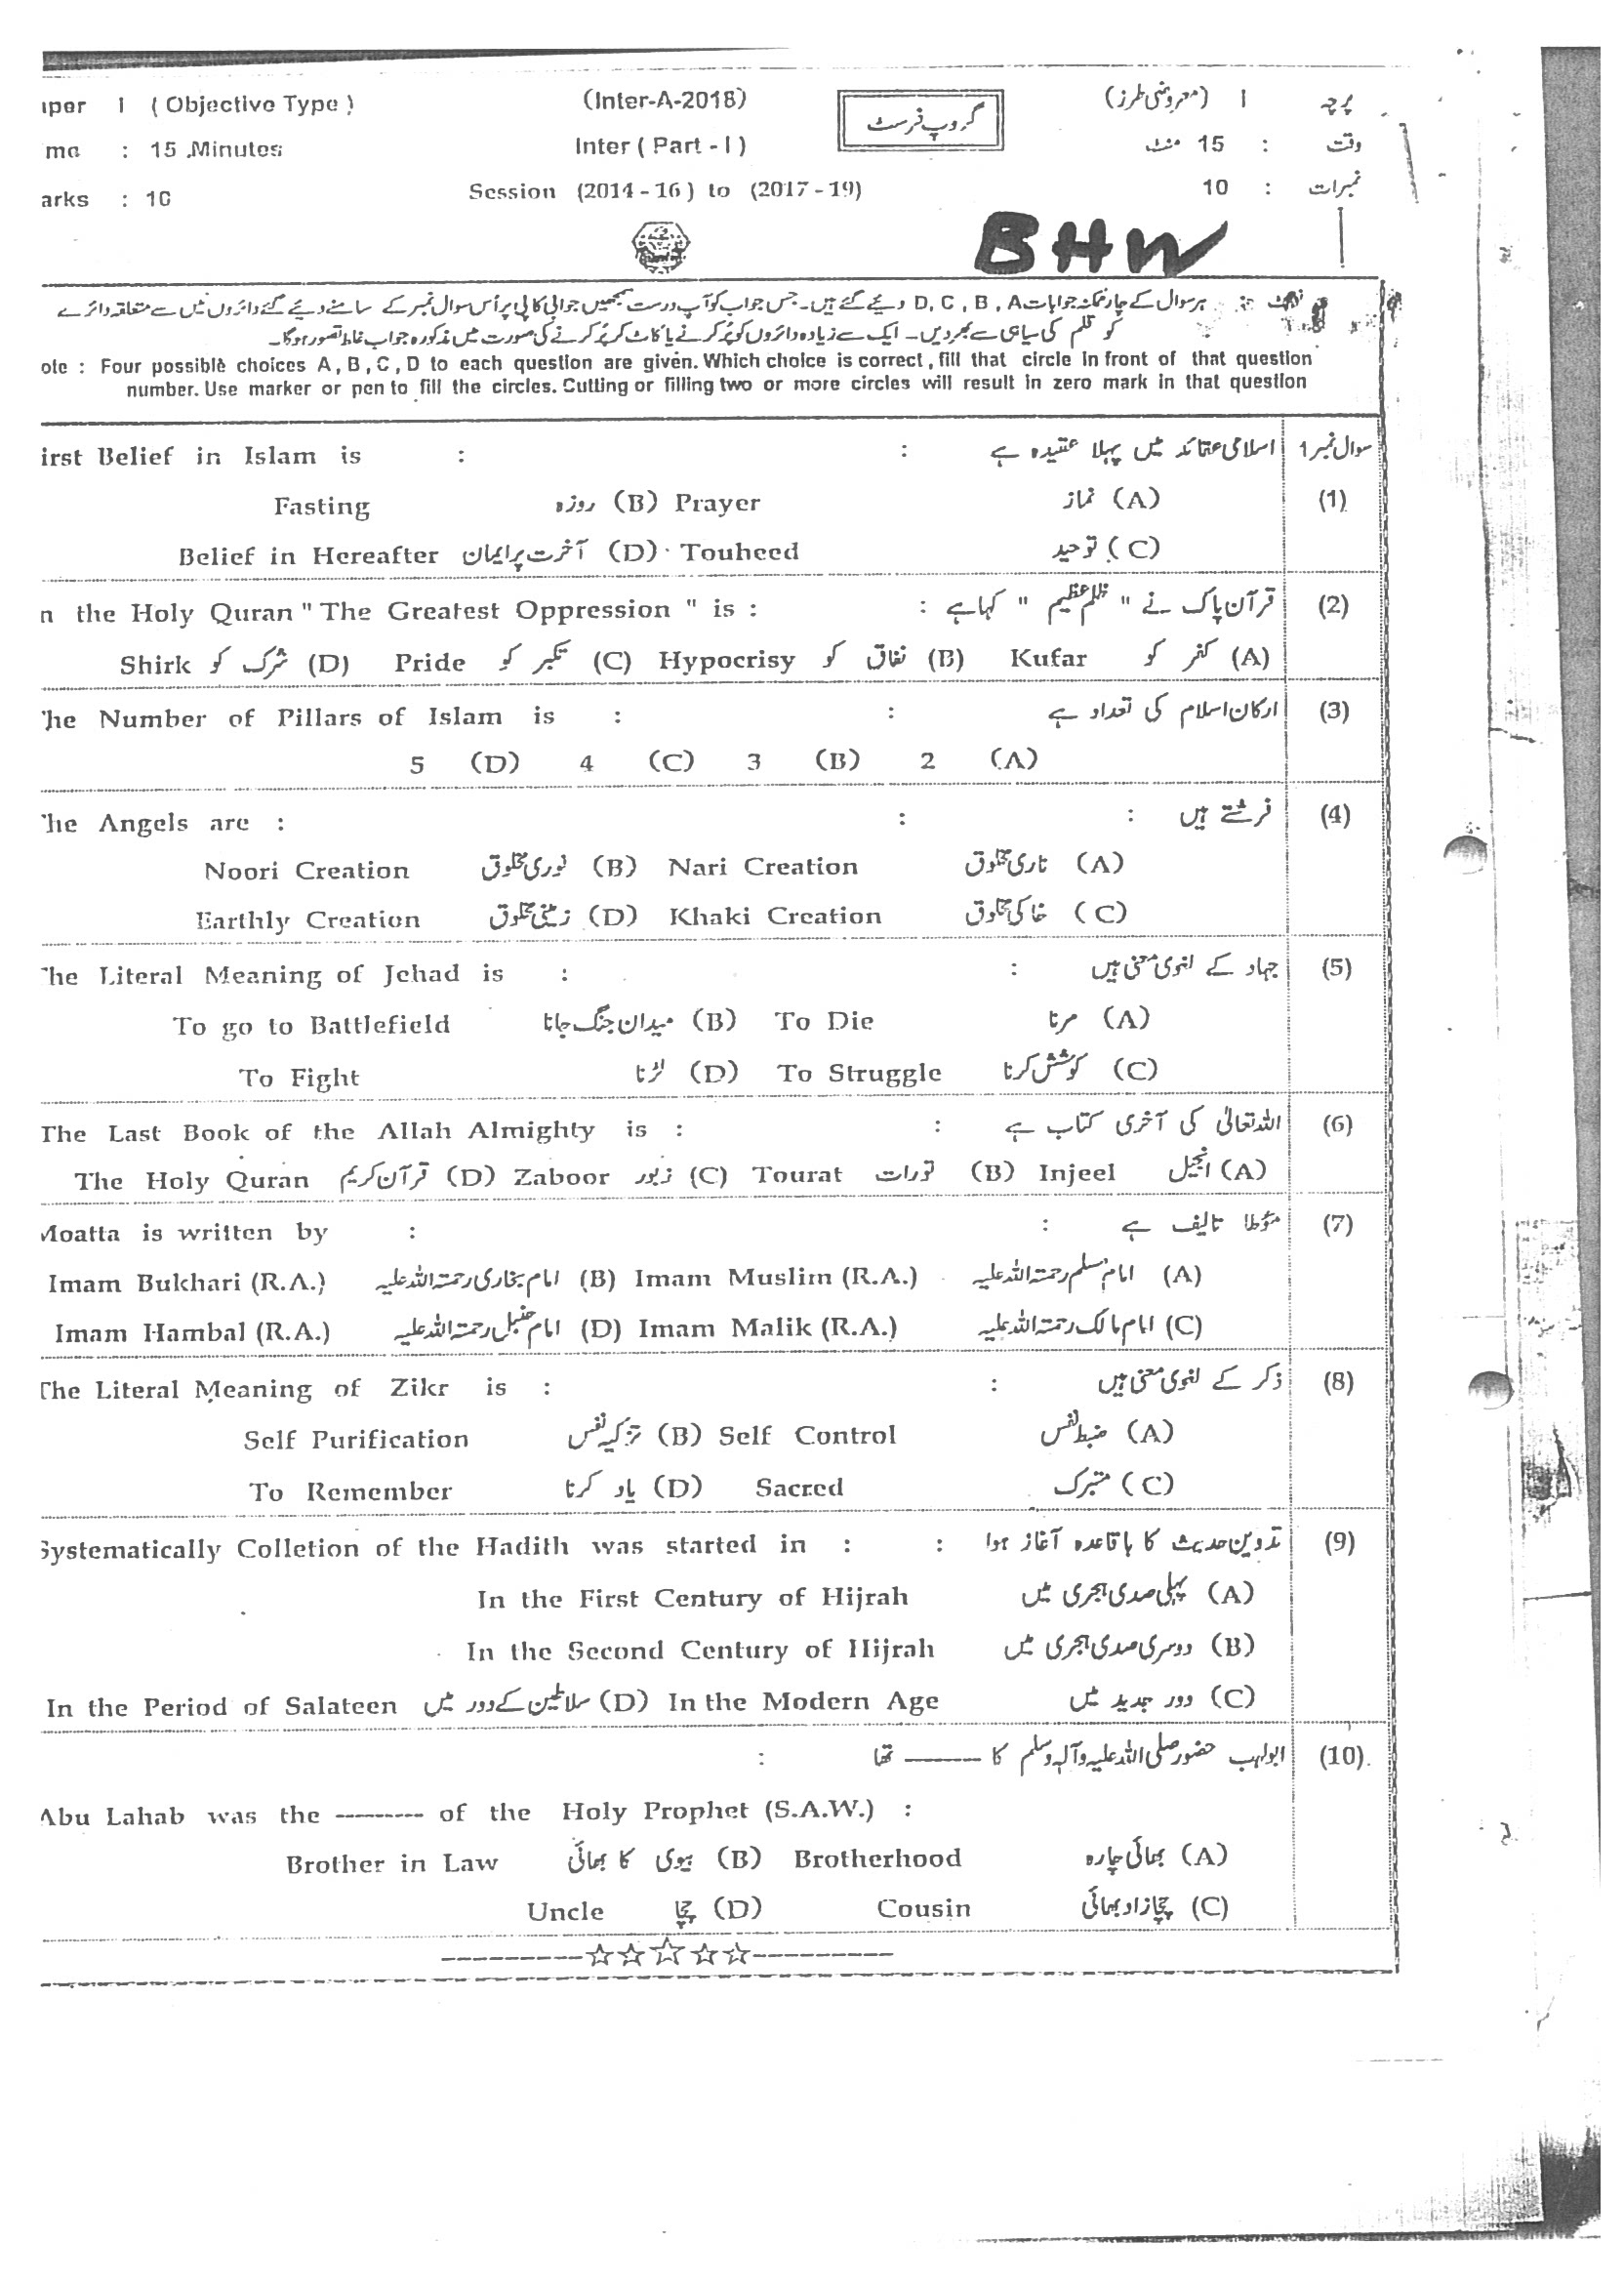 aper I ( Objective Type ) (Inter-A-2018) گروپ فرسٹ پرچہ I (معروضی طرز)
me : 15 Minutes Inter ( Part - I ) وقت : 15 منٹ
arks : 10 Session (2014 - 16) to (2017 - 19) نمبرات : 10
BHW
ہر سوال کے چار ممکنہ جوابات D, C, B, A دیئے گئے ہیں۔ جس جواب کو آپ درست سمجھیں جوابی کاپی پر اُس سوال نمبر کے سامنے دیئے گئے دائروں میں سے متعلقہ دائرے
کو قلم کی سیاہی سے بھر دیں۔ ایک سے زیادہ دائروں کو پُر کرنے یا کاٹ کر پُر کرنے کی صورت میں مذکورہ جواب غلط تصور ہوگا۔
ote : Four possible choices A, B, C, D to each question are given. Which choice is correct, fill that circle in front of that question
number. Use marker or pen to fill the circles. Cutting or filling two or more circles will result in zero mark in that question
irst Belief in Islam is : : اسلامی عقائد میں پہلا عقیدہ ہے سوال نمبر 1
Fasting روزہ (B) Prayer نماز (A) (1)
Belief in Hereafter آخرت پر ایمان (D) Touheed توحید (C)
n the Holy Quran " The Greatest Oppression " is : : قرآن پاک نے " ظلم عظیم " کہا ہے (2)
Shirk شرک کو (D) Pride تکبر کو (C) Hypocrisy نفاق کو (B) Kufar کفر کو (A)
he Number of Pillars of Islam is : : ارکان اسلام کی تعداد ہے (3)
5 (D) 4 (C) 3 (B) 2 (A)
he Angels are : : : فرشتے ہیں (4)
Noori Creation نوری مخلوق (B) Nari Creation ناری مخلوق (A)
Earthly Creation زمینی مخلوق (D) Khaki Creation خاکی مخلوق (C)
The Literal Meaning of Jehad is : : جہاد کے لغوی معنی ہیں (5)
To go to Battlefield میدان جنگ جانا (B) To Die مرنا (A)
To Fight لڑنا (D) To Struggle کوشش کرنا (C)
The Last Book of the Allah Almighty is : : اللہ تعالیٰ کی آخری کتاب ہے (6)
The Holy Quran قرآن کریم (D) Zaboor زبور (C) Tourat تورات (B) Injeel انجیل (A)
Moatta is written by : : مؤطا تالیف ہے (7)
Imam Bukhari (R.A.) امام بخاری رحمتہ اللہ علیہ (B) Imam Muslim (R.A.) امام مسلم رحمتہ اللہ علیہ (A)
Imam Hambal (R.A.) امام حنبل رحمتہ اللہ علیہ (D) Imam Malik (R.A.) امام مالک رحمتہ اللہ علیہ (C)
The Literal Meaning of Zikr is : : ذکر کے لغوی معنی ہیں (8)
Self Purification تزکیہ نفس (B) Self Control ضبط نفس (A)
To Remember یاد کرنا (D) Sacred متبرک (C)
Systematically Colletion of the Hadith was started in : : تدوین حدیث کا باقاعدہ آغاز ہوا (9)
In the First Century of Hijrah پہلی صدی ہجری میں (A)
In the Second Century of Hijrah دوسری صدی ہجری میں (B)
In the Period of Salateen سلاطین کے دور میں (D) In the Modern Age دور جدید میں (C)
: ابولہب حضور صلی اللہ علیہ وآلہ وسلم کا -------- تھا (10)
Abu Lahab was the --------- of the Holy Prophet (S.A.W.) :
Brother in Law بیوی کا بھائی (B) Brotherhood بھائی چارہ (A)
Uncle چچا (D) Cousin چچا زاد بھائی (C)
----------☆☆☆☆☆----------